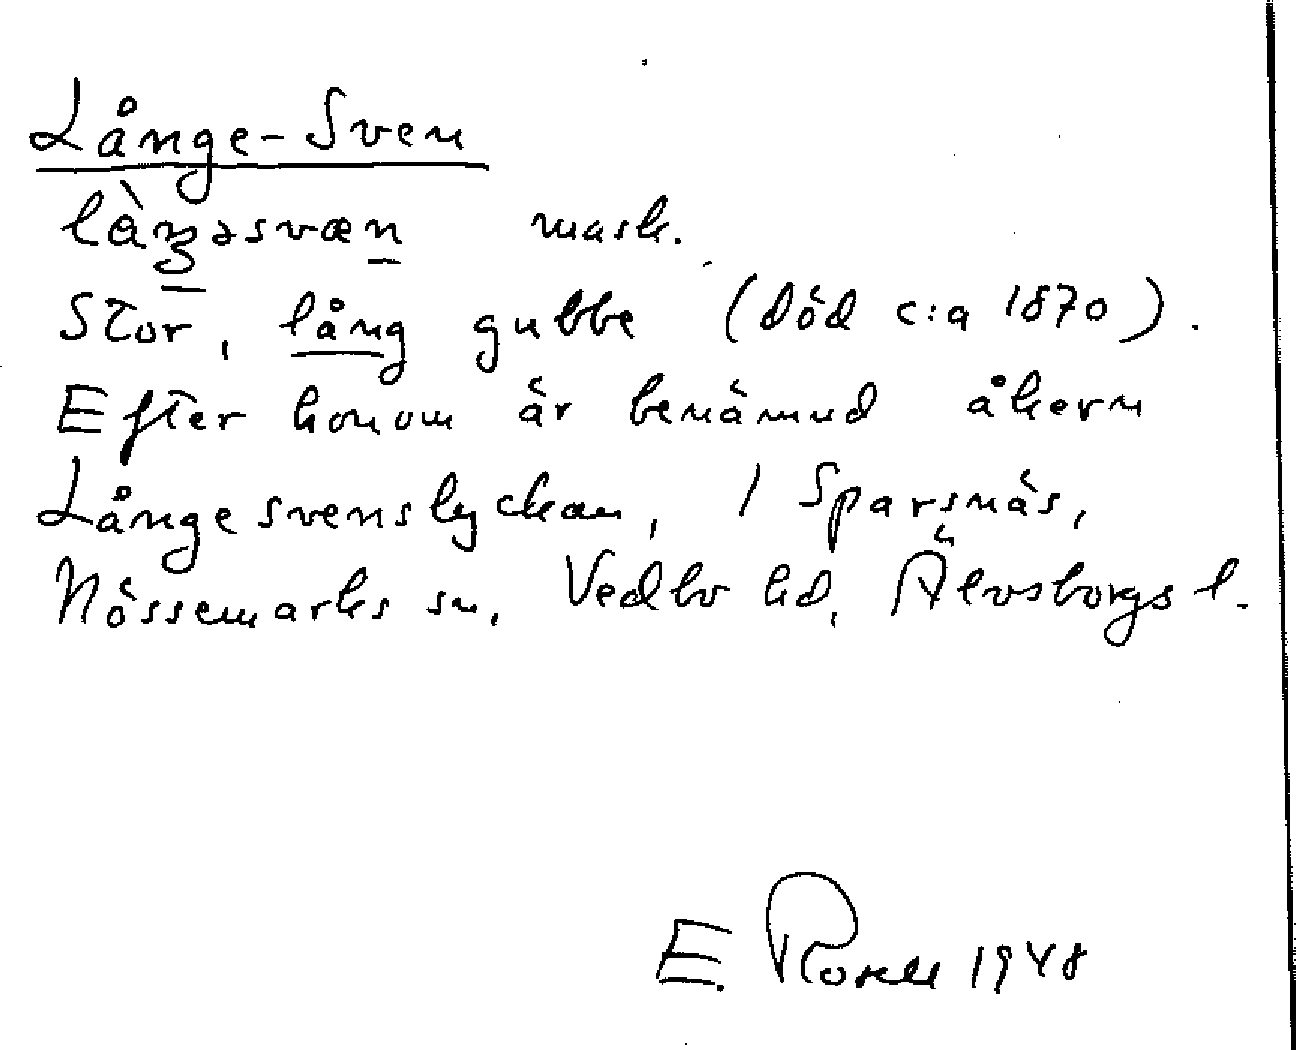 Långe-Sven
làŋəsvæn mask.
Stor, lång gubbe (död c:a 1870).
Efter honom är benämnd åkern
Långesvenslyckan, / Sparsnäs,
Nössemarks sn, Vedbo hd, Älvsborgs l.
E. 1948